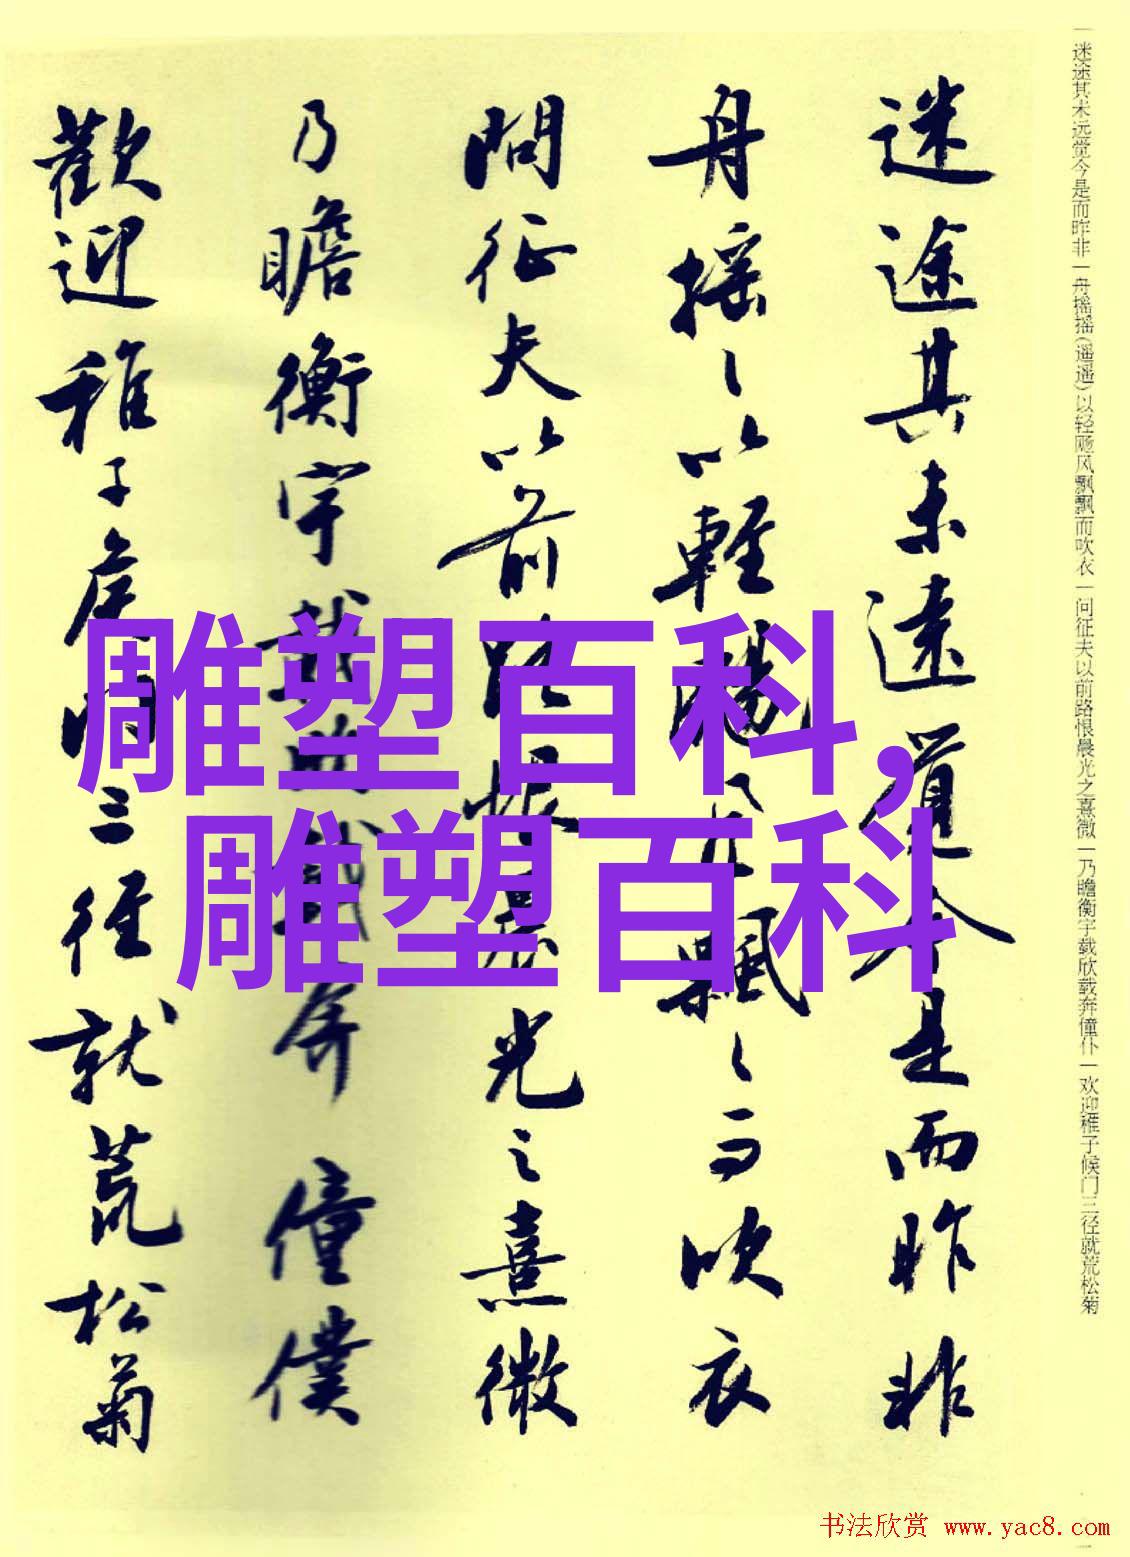 迷途其未远觉今是而昨非一舟摇摇(遥遥)以轻飏风飘飘而吹衣一问征夫以前路恨晨光之熹微一乃瞻衡宇载欣载奔僮仆一欢迎稚子候门三径就荒松菊
迷途其未遠覺今是而昨非
舟摇〻以輕颺風飄〻而吹衣
問征夫以前路恨晨光之熹微
乃瞻衡宇載欣載奔僮僕
歡迎稚子候門三徑就荒松菊
雕塑百科,
雕塑百科
书法欣赏 www.yac8.com